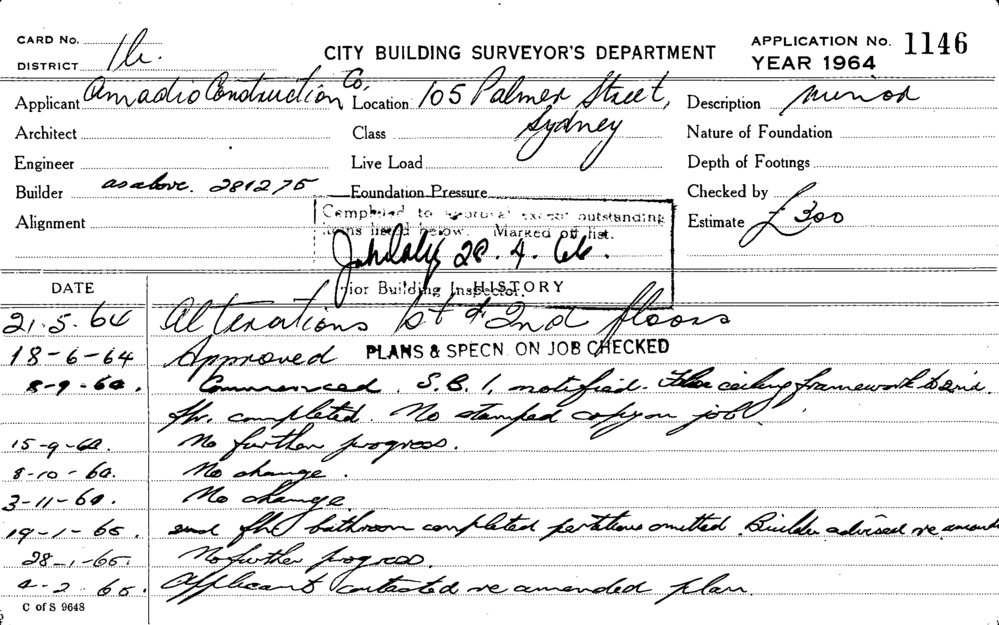 CARD No. 16.
DISTRICT
CITY BUILDING SURVEYOR'S DEPARTMENT
APPLICATION No. 1146
YEAR 1964
Applicant Amadio Construction Co,
Location 105 Palmer Street,
Sydney
Description Minor
Architect
Class
Nature of Foundation
Engineer
Live Load
Depth of Footings
Builder as above. 281275
Foundation Pressure
Checked by
Alignment
Estimate £300
Completed to approval except outstanding
items listed below. Marked off list.
28.4.66.
ior Building Inspector.
DATE
HISTORY
21.5.64 Alterations 1st & 2nd floors
18-6-64 Approved PLANS & SPECN. ON JOB CHECKED
8-9-64. Commenced. S.B.I. notified. ceiling framework to 2nd.
flr. completed. No stamped copy on job.
15-9-64. No further progress.
8-10-64. No change.
3-11-64. No change
19-1-65. 2nd flr bathroom completed partitions omitted. Builder advised re amend
28-1-65. No further progress.
4-2-65. Applicant contacted re amended plan.
C of S 9648